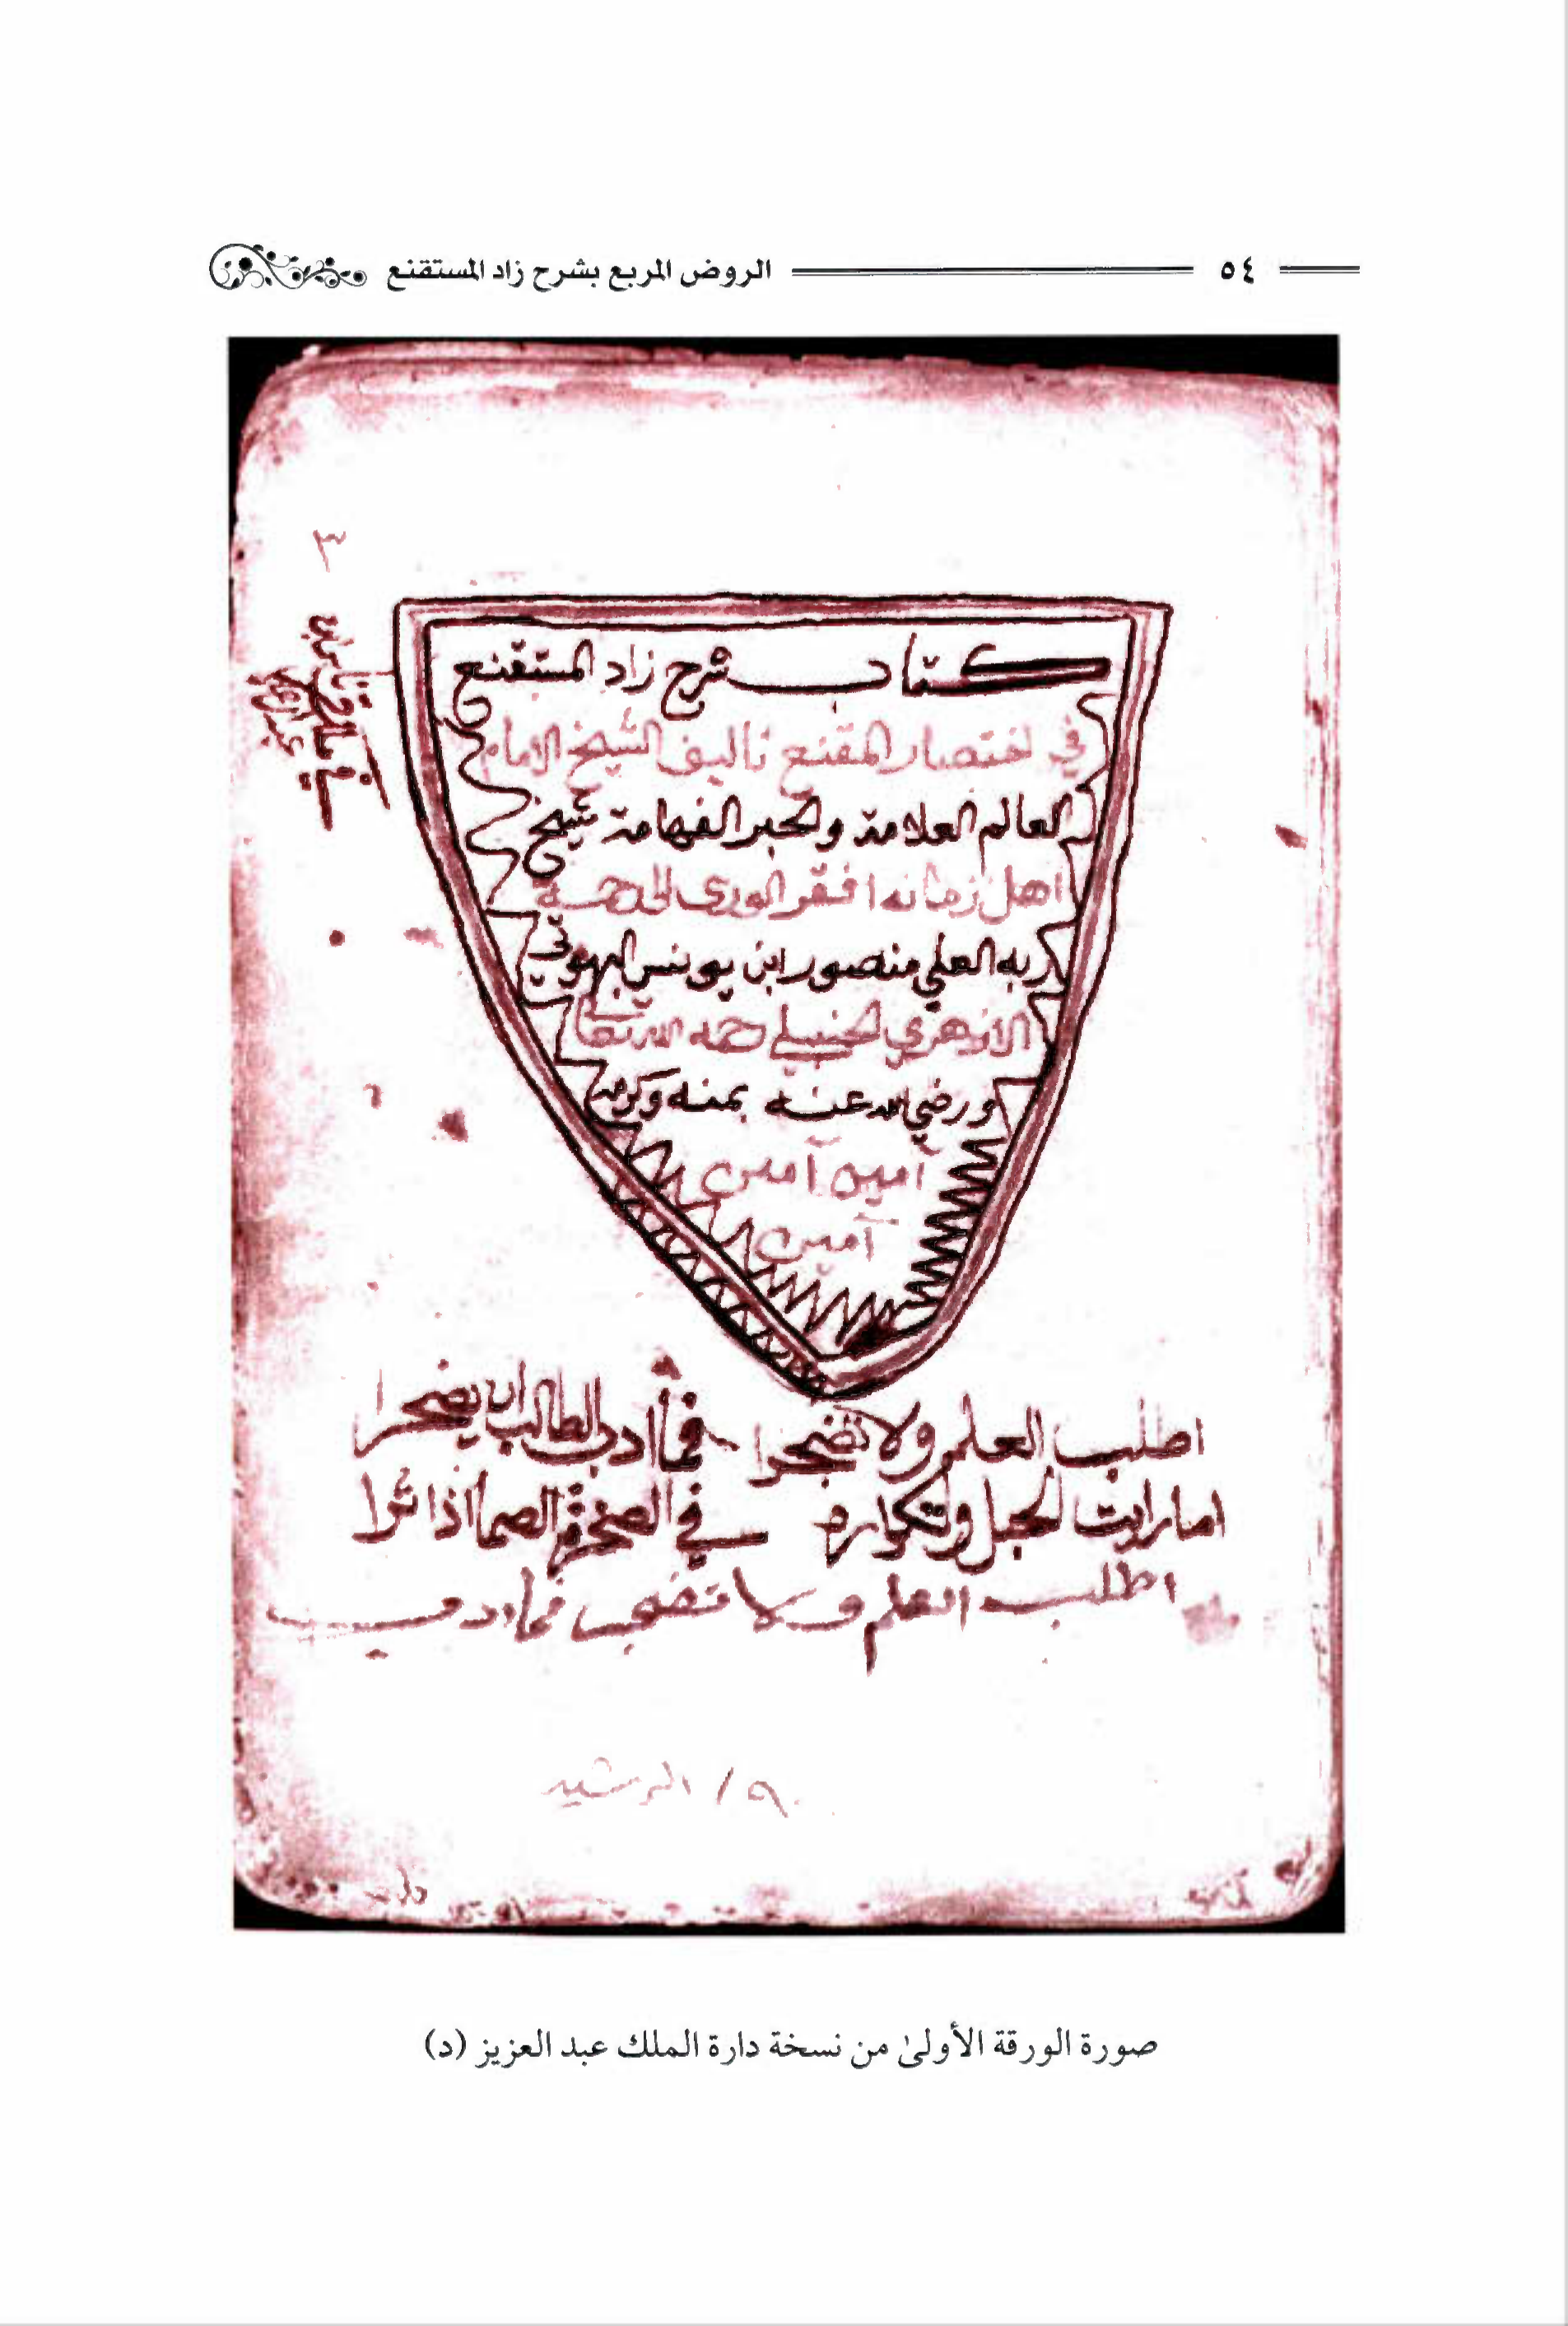 ٥٤ الروض المربع بشرح زاد المستقنع
٣
كتاب شرح زاد المستقنع
في اختصار المقنع تاليف الشيخ الامام
العالم العلامة والحبر الفهامة شيخ
اهل زمانه افقر الورى الى رحمة
ربه العلي منصور ابن يونس البهوتي
الازهري الحنبلي رحمه الله تعالى
ورضي الله عنه بمنه وكرمه
آمين آمين
آمين
اطلب العلم ولا تضجرا فما ادب الطالب ان يضجرا
اما رايت الحبل وتكراره في الصخرة الصما اذا اثرا
اطلب العلم ولا تضجر فما ادب
٩٠/ الرشيد
صورة الورقة الأولىٰ من نسخة دارة الملك عبد العزيز (د)